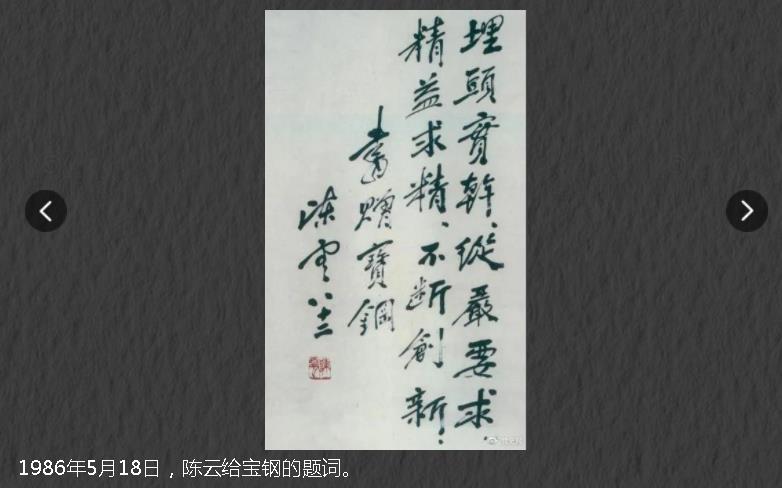 埋頭實幹、從嚴要求、
精益求精、不斷創新。
書贈寶鋼
陳雲 八十二
1986年5月18日，陈云给宝钢的题词。